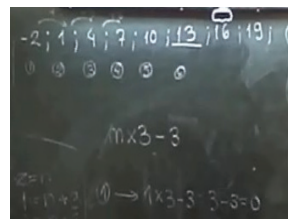 -2 ; 1 ; 4 ; 7 ; 10 ; 13 ; 16 ; 19 ;
① ② ③ ④ ⑤ ⑥
n×3-3
① → 1×3-3 3-3=0